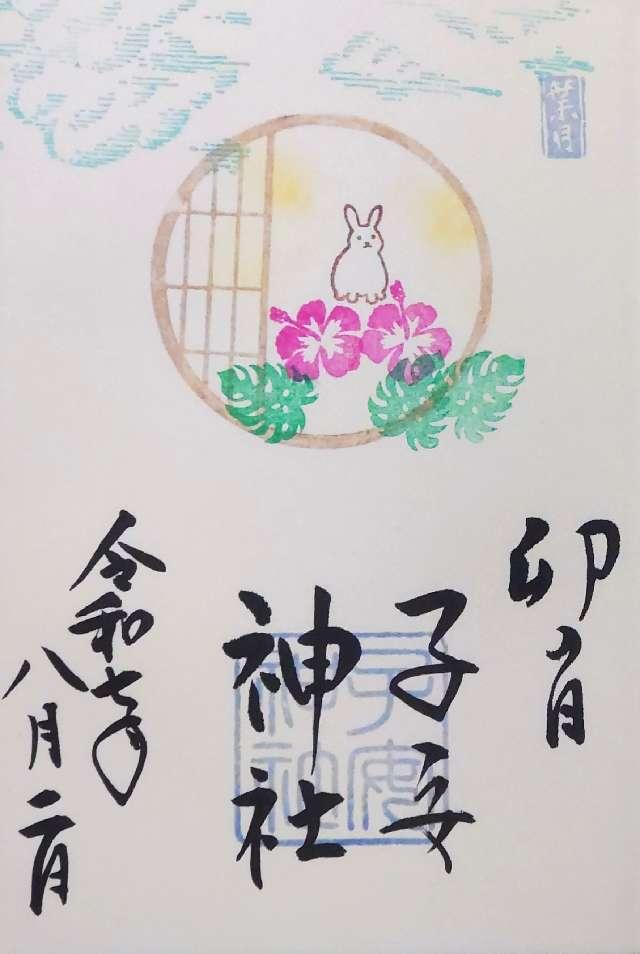 葉月
卯の日
子安
神社
子安
神社
令和七年
八月二日